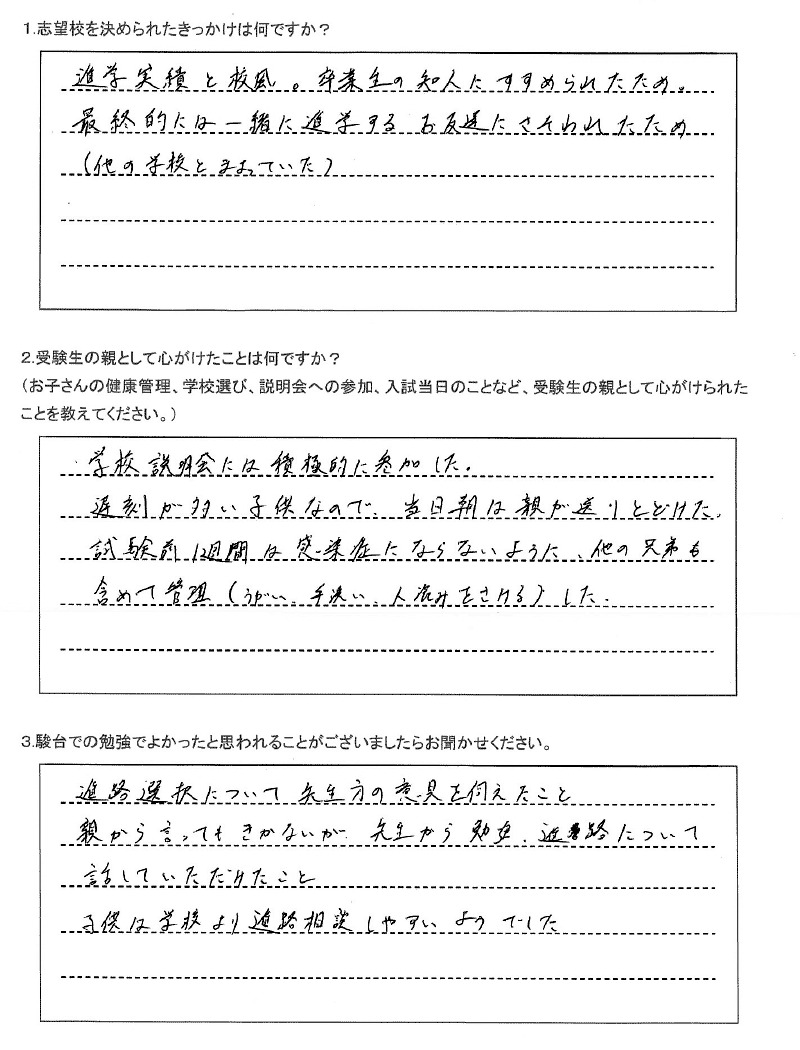 1.志望校を決められたきっかけは何ですか？
進学実績と校風。卒業生の知人にすすめられたため。
最終的には一緒に進学するお友達にさそわれたため
（他の学校とまよっていた）
2.受験生の親として心がけたことは何ですか？
（お子さんの健康管理、学校選び、説明会への参加、入試当日のことなど、受験生の親として心がけられた
ことを教えてください。）
学校説明会には積極的に参加した。
遅刻が多い子供なので、当日朝は親が送りとどけた。
試験前12週間は感染症にならないように、他の兄弟も
含めて管理（うがい、手洗い、人混みをさける）した。
3.駿台での勉強でよかったと思われることがございましたらお聞かせください。
進路選択について先生方の意見を伺えたこと
親から言ってもきかないが、先生から勉強、進路について
話していただけたこと
子供は学校より進路相談しやすいようでした